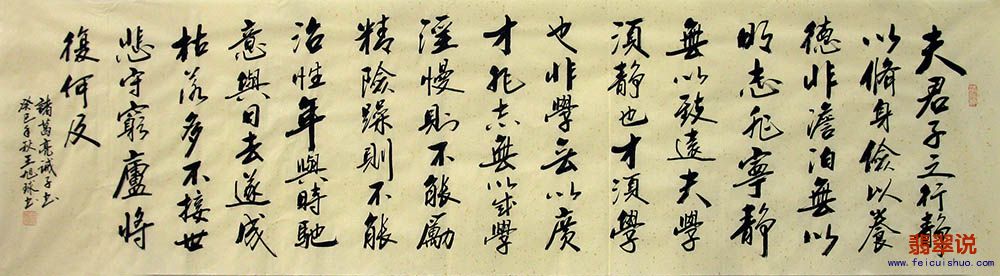 夫君子之行静
以脩身儉以養
德非澹泊無以
明志非寧静
無以致遠夫學
須静也才須學
也非學无以廣
才非志無以成學
淫慢則不能勵
精險躁則不能
治性年與時馳
意與日去遂成
枯落多不接世
悲守窮廬將
復何及
諸葛亮誡子书
癸巳年秋王旭书
翡翠说
www.feicuishuo.com